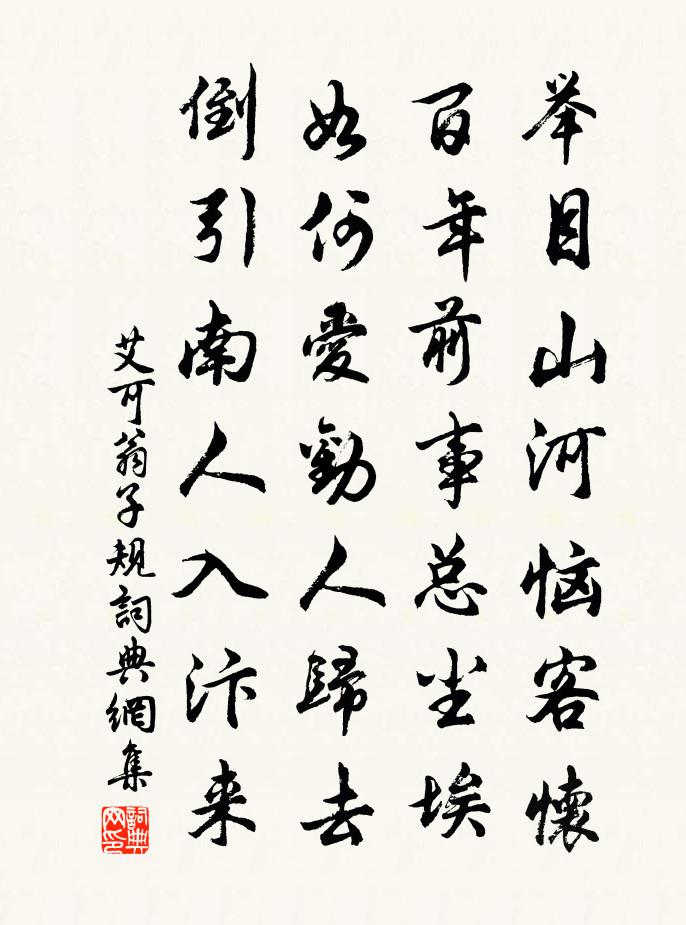 举目山河恼客懷
百年前事总尘埃
如何愛勸人歸去
倒引南人入汴来
艾可翁子規詞典網集
詞典网印